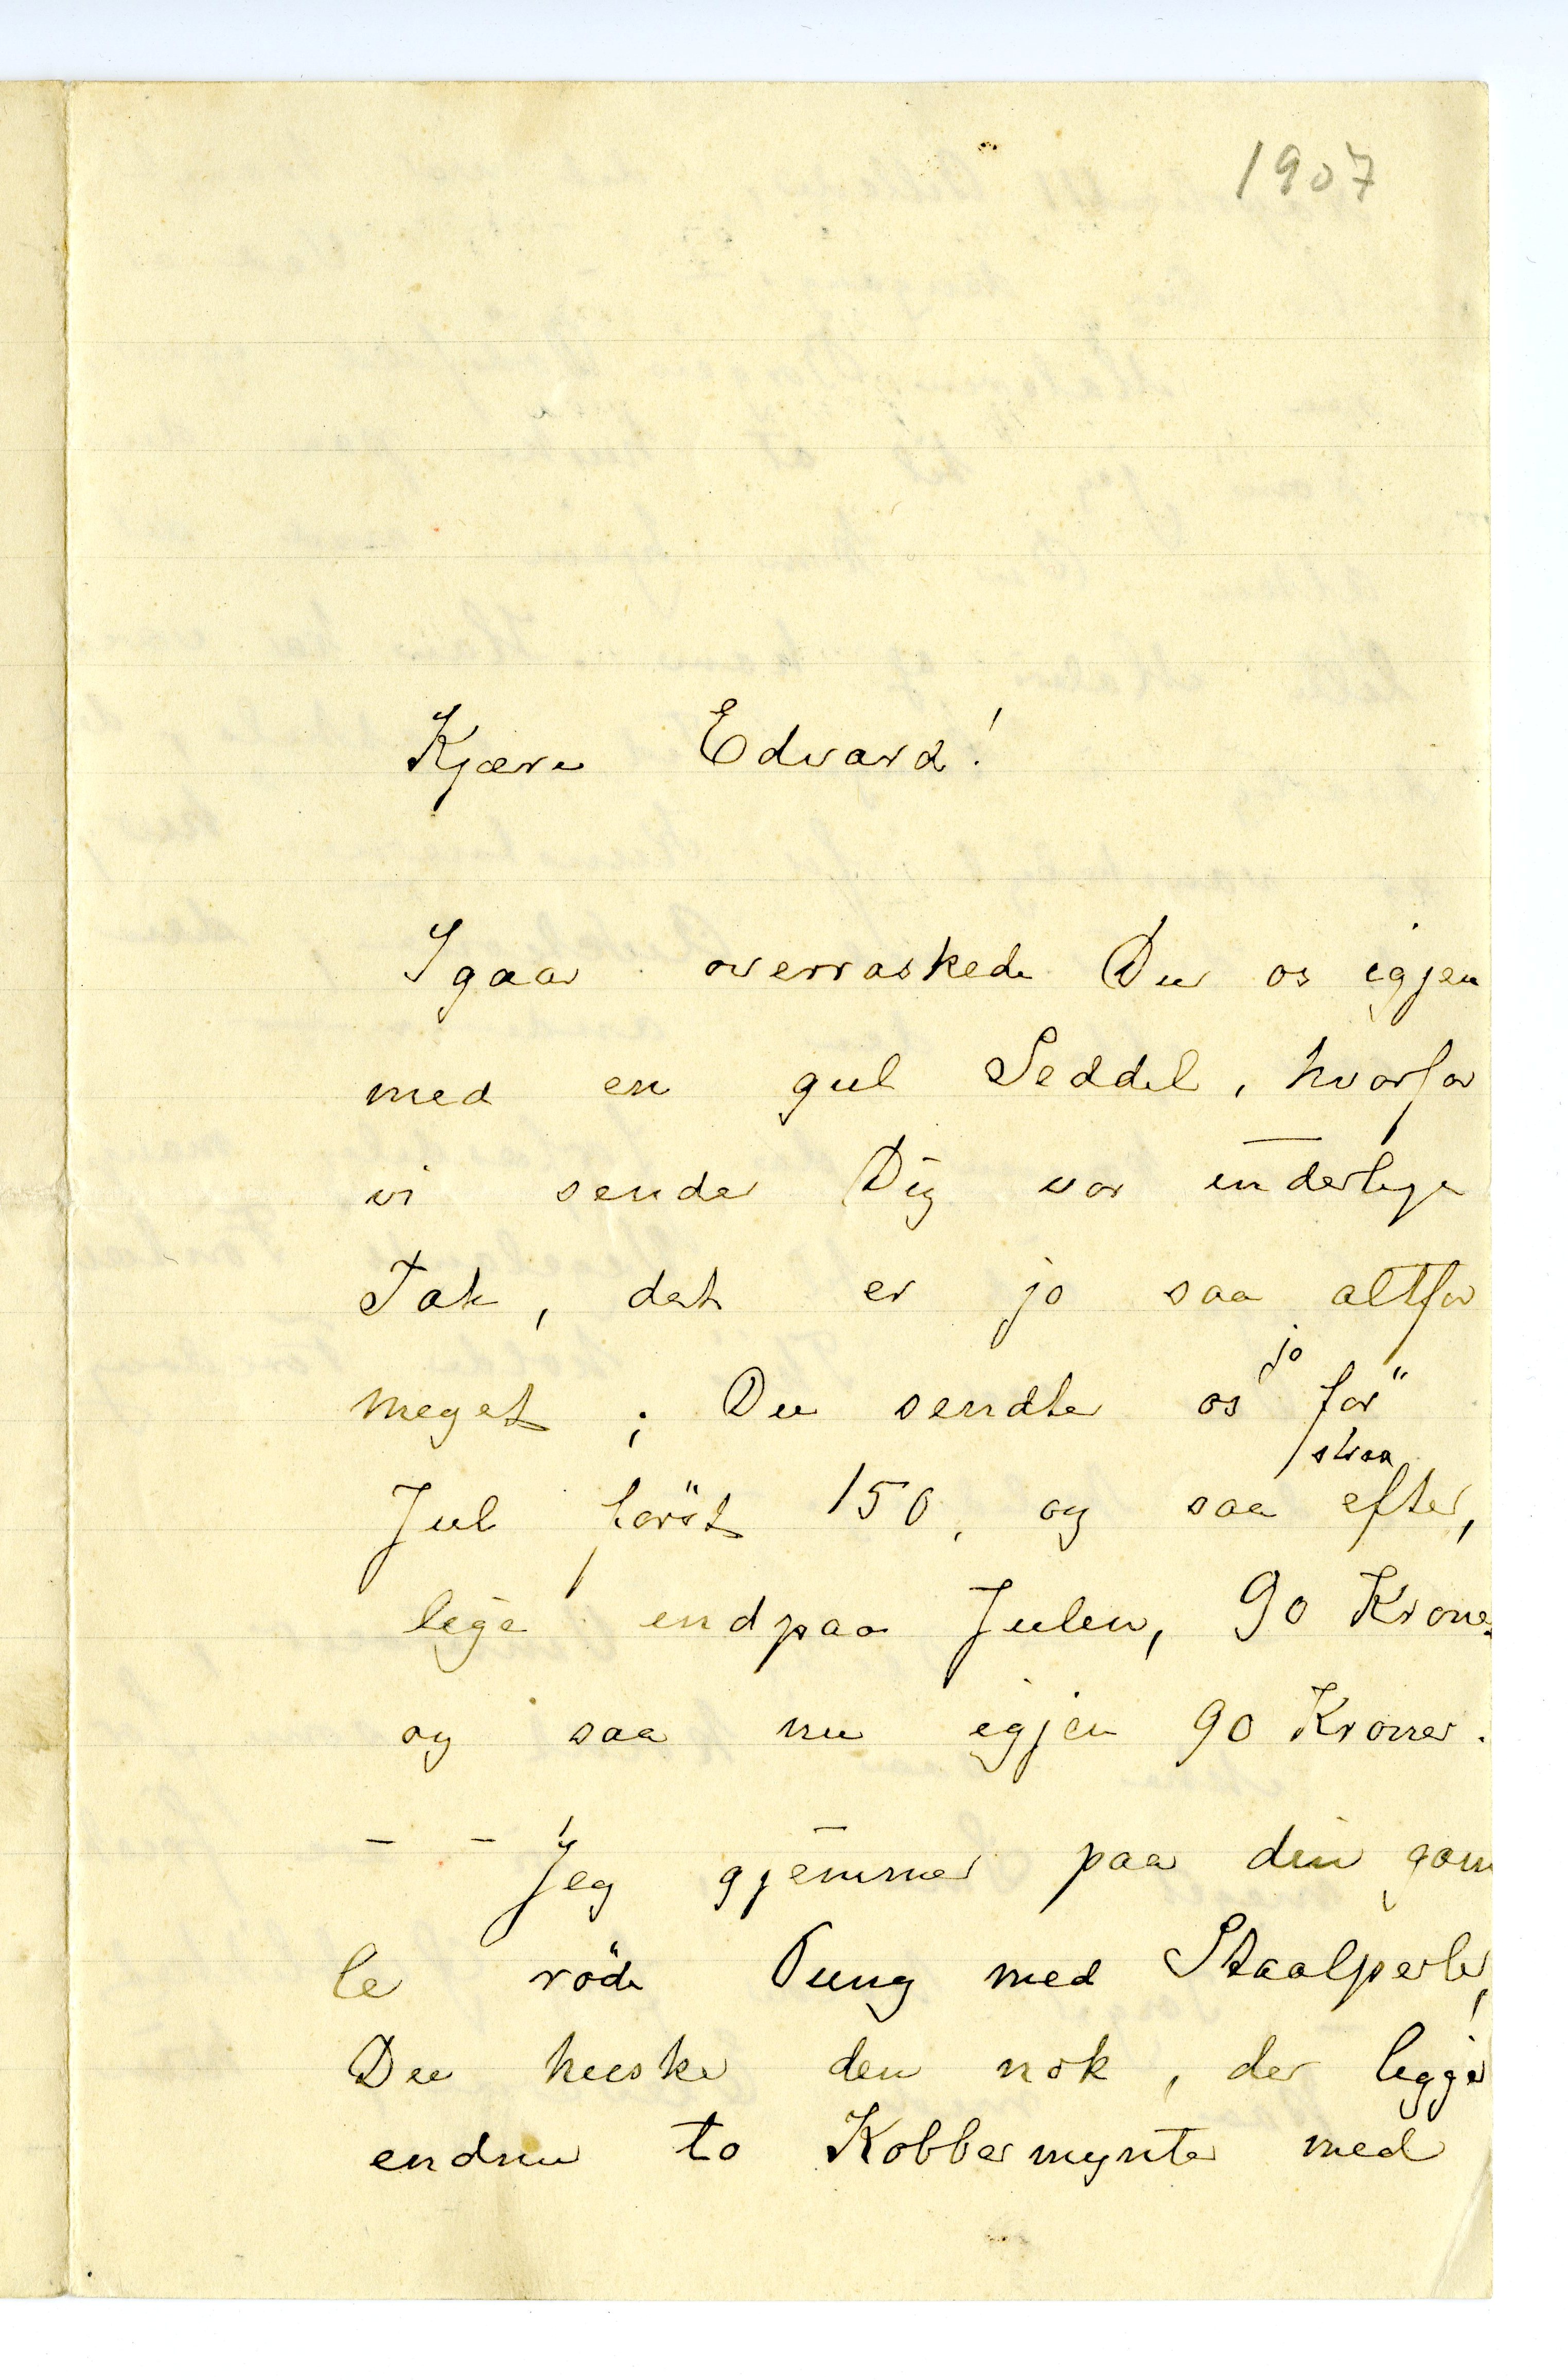 1907
Kjære Edvard!
Igaar overraskede Du os igjen
med en gul Seddel, hvorfor
vi sender Dig vor inderlige
Tak, det er jo saa altfor
jo
meget; Du sendte os för
straa
Jul först 150, og saa efter,
lige endpaa Julen, 90 Kroner
og saa nu igjen 90 Kroner.
– – Jeg gjemmer paa din gam
le röde Pung med Staalperler,
Du husker den nok, der ligger
endnu to Kobbermynter med